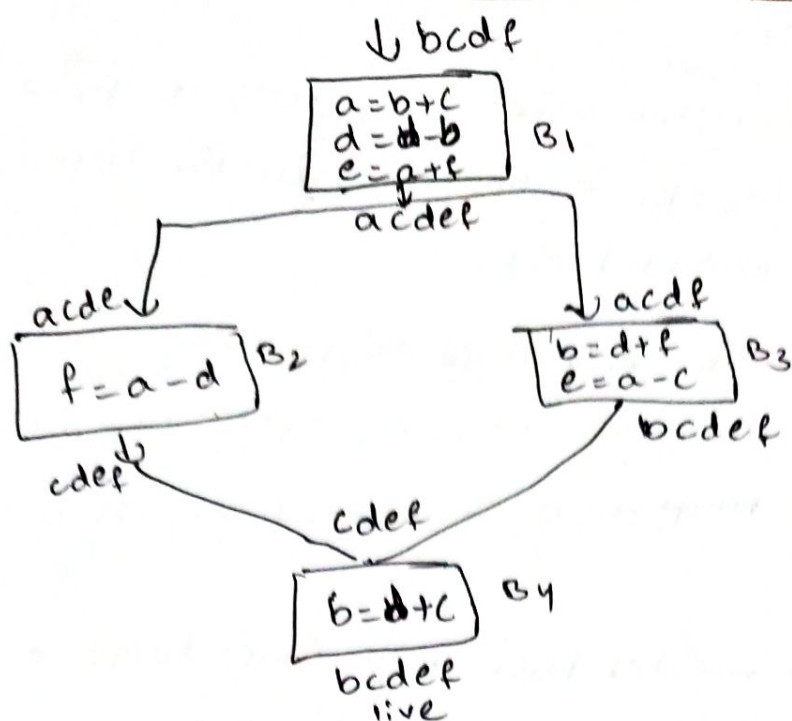 bcdf
a = b + c
d = d - b
e = a + f
B1
acdef
acde
f = a - d
B2
cdef
acdf
b = d + f
e = a - c
B3
bcdef
cdef
b = d + c
B4
bcdef
live